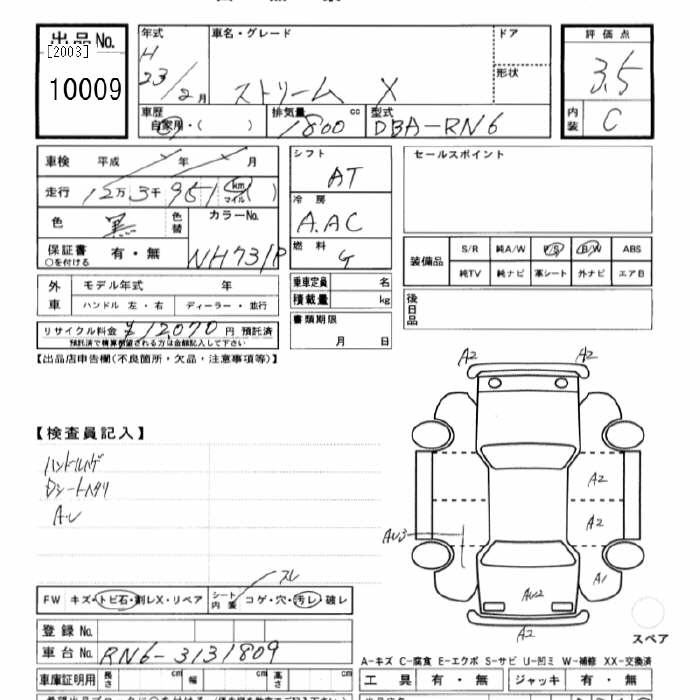 出品No.
[2003]
10009
年式
H
23/2月
車名・グレード
ストリーム X
ドア
形状
評価点
3.5
内装 C
車歴
自家用・( )
排気量 cc
1800
型式
DBA-RN6
車検 平成 年 月
走行 12万3千951 km マイル ( )
色 黒 色替
カラーNo.
NH731P
保証書 有・無
○を付ける
シフト
AT
冷房
A.AC
燃料
G
乗車定員 名
積載量 kg
書類期限
月 日
セールスポイント
装備品
S/R 純A/W P/S P/W ABS
純TV 純ナビ 革シート 外ナビ エアB
後日品
外車
モデル年式 年
ハンドル 左・右 ディーラー・並行
リサイクル料金 ¥12070 円 預託済
預託済で精算希望される方は金額記入して下さい
【出品店申告欄(不良箇所・欠品・注意事項等)】
【検査員記入】
ハンドルハゲ
Dシートヘタリ
A-U
スレ
FW キズ・トビ石・割レX・リペア
シート内装 コゲ・穴・汚レ・破レ
登録No.
車台No. RN6-3131809
車庫証明用 長さ cm 幅 cm 高さ cm
A2 A2
A2
A2
AU3
A1
AU2
A2
スペア
A-キズ C-腐食 E-エクボ S-サビ U-凹ミ W-補修 XX-交換済
工具 有・無 ジャッキ 有・無